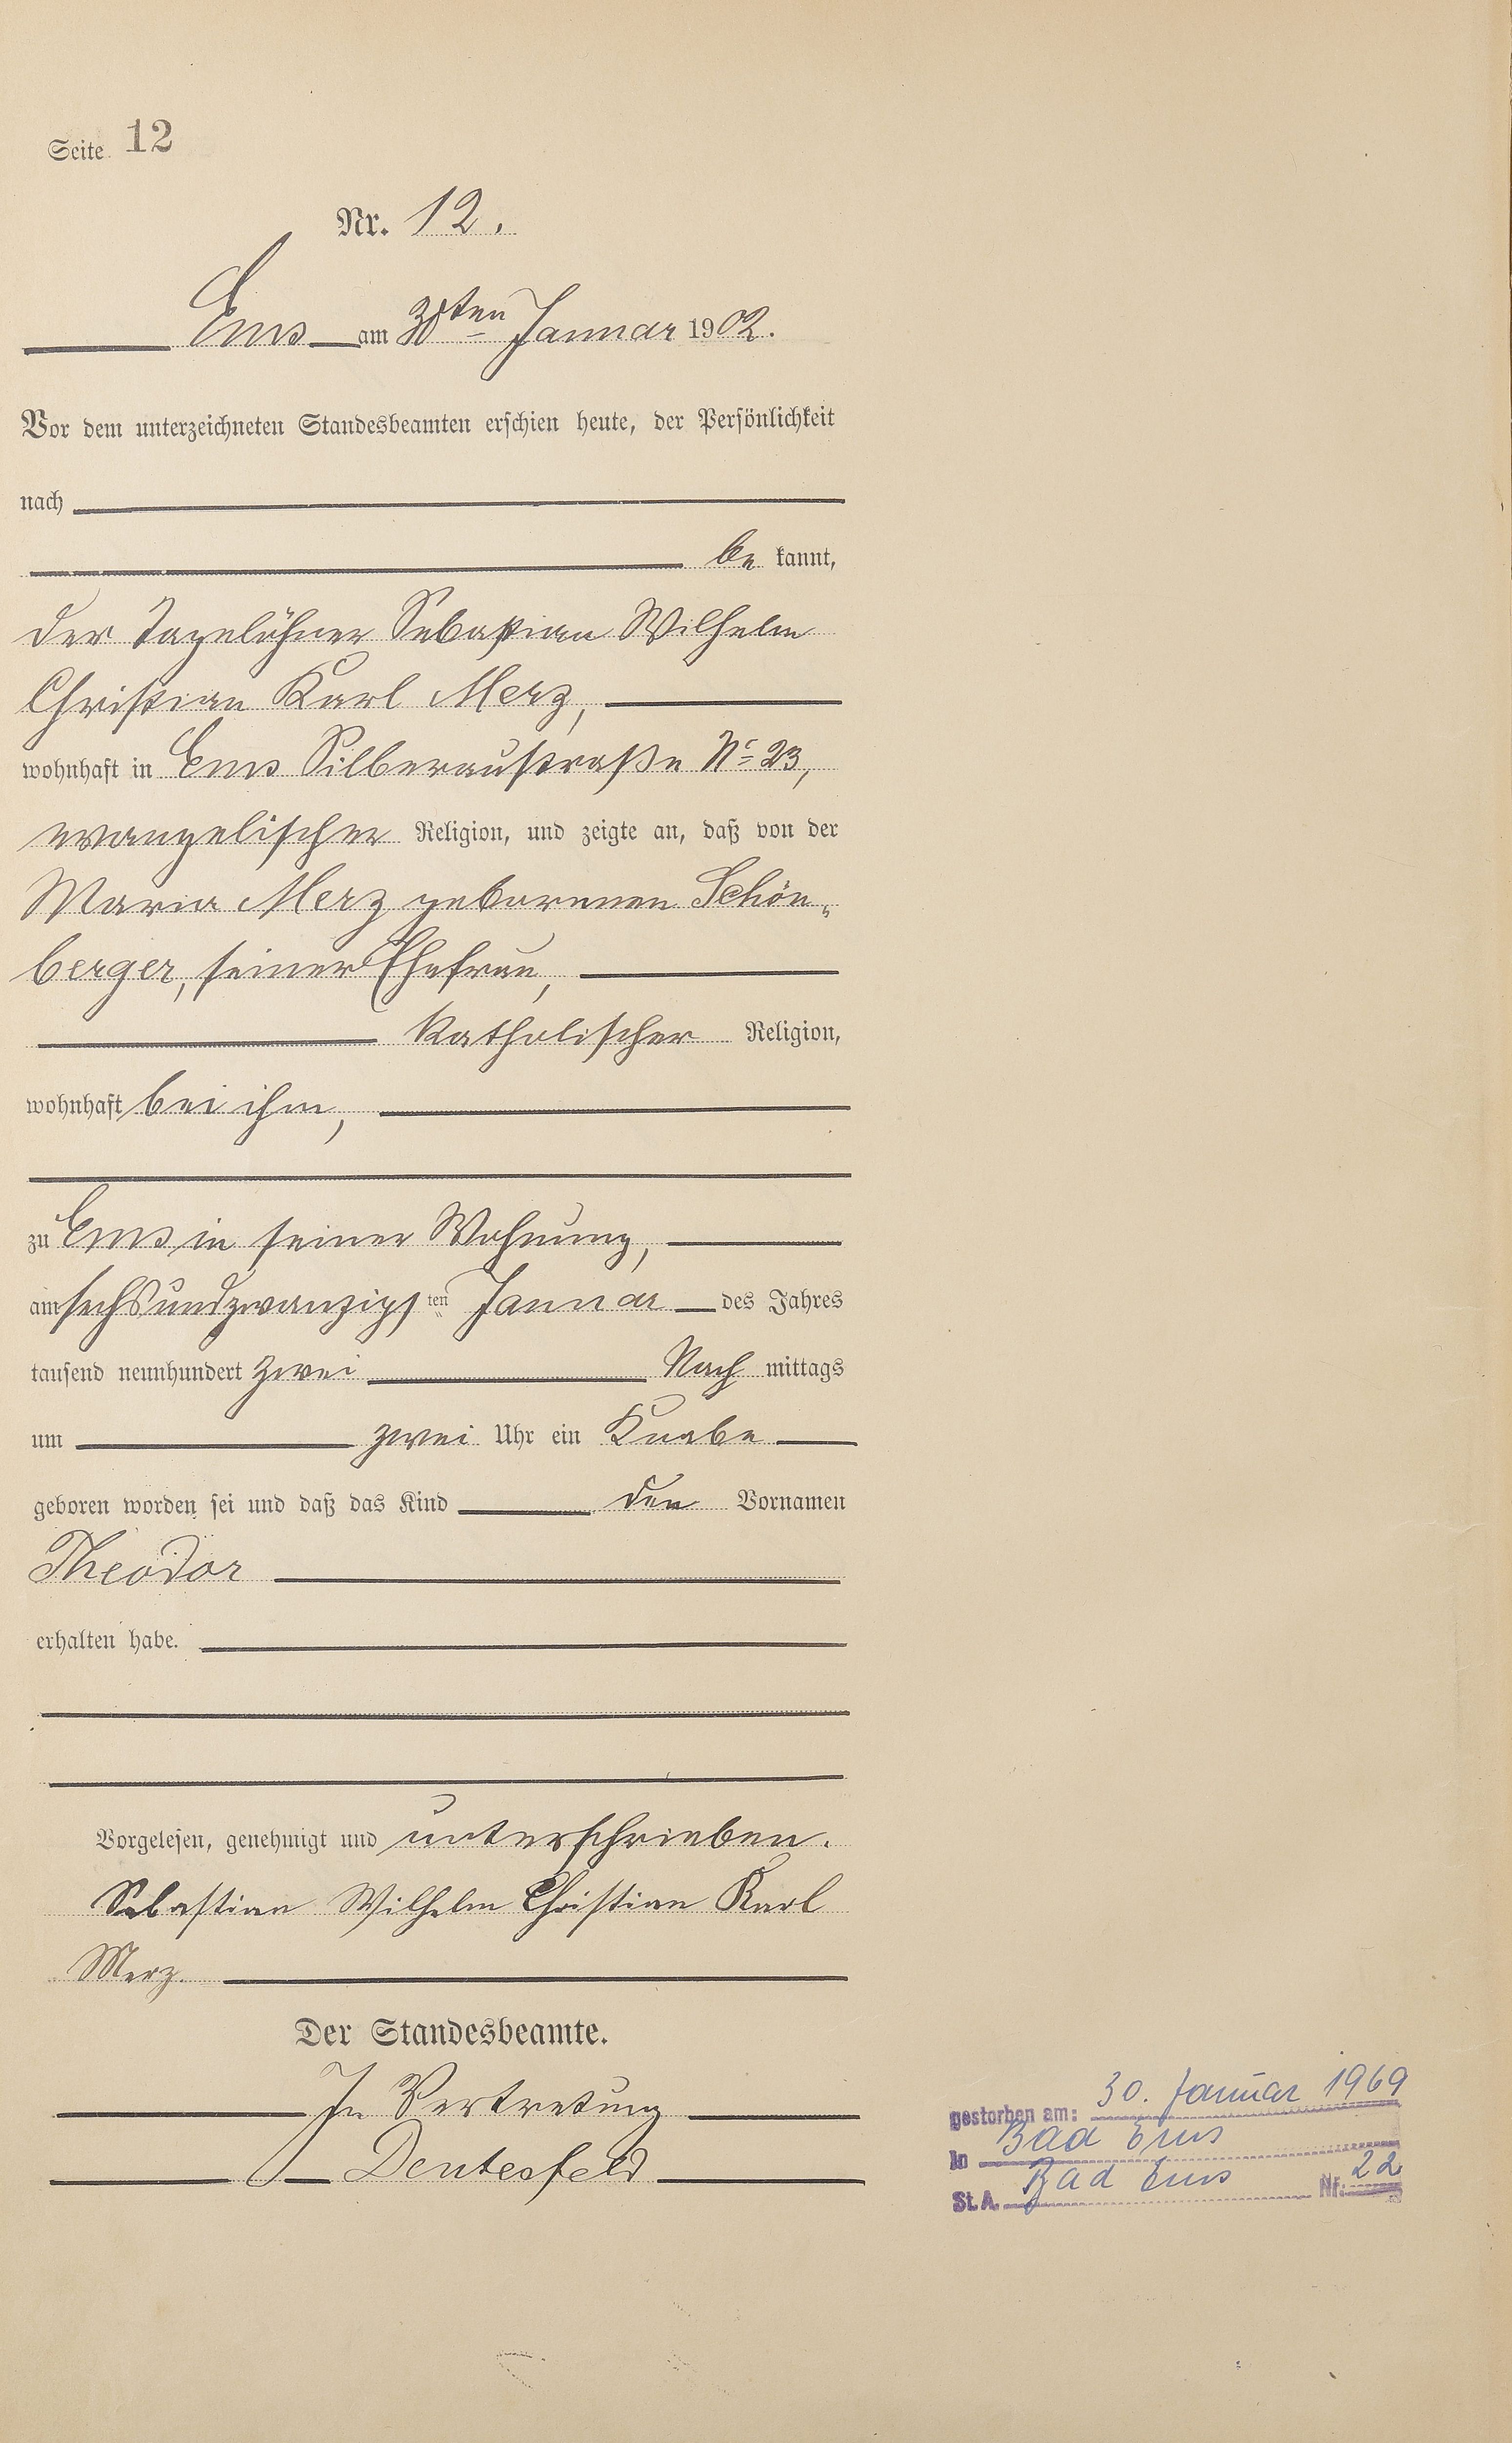 Seite 12
Nr. 12.
Ems am 30ten Januar 1902.
Vor dem unterzeichneten Standesbeamten erschien heute, der Persönlichkeit
nach
be kannt,
der Tagelöhner Sebastian Wilhelm
Christian Karl Merz,
wohnhaft in Ems Silberaustraße No 23,
evangelischer Religion, und zeigte an, daß von der
Maria Merz geborenen Schön-
berger, seiner Ehefrau,
katholischer Religion,
wohnhaft bei ihm,
zu Ems in seiner Wohnung,
am sechsundzwanzigsten Januar des Jahres
tausend neunhundert zwei Nach mittags
um zwei Uhr ein Knabe
geboren worden sei und daß das Kind den Vornamen
Theodor
erhalten habe.
Vorgelesen, genehmigt und unterschrieben.
Sebastian Wilhelm Christian Karl
Merz.
Der Standesbeamte.
In Vertretung
Dentesfeld
gestorben am: 30. Januar 1969
In Bad Ems
St. A. Bad Ems Nr. 22